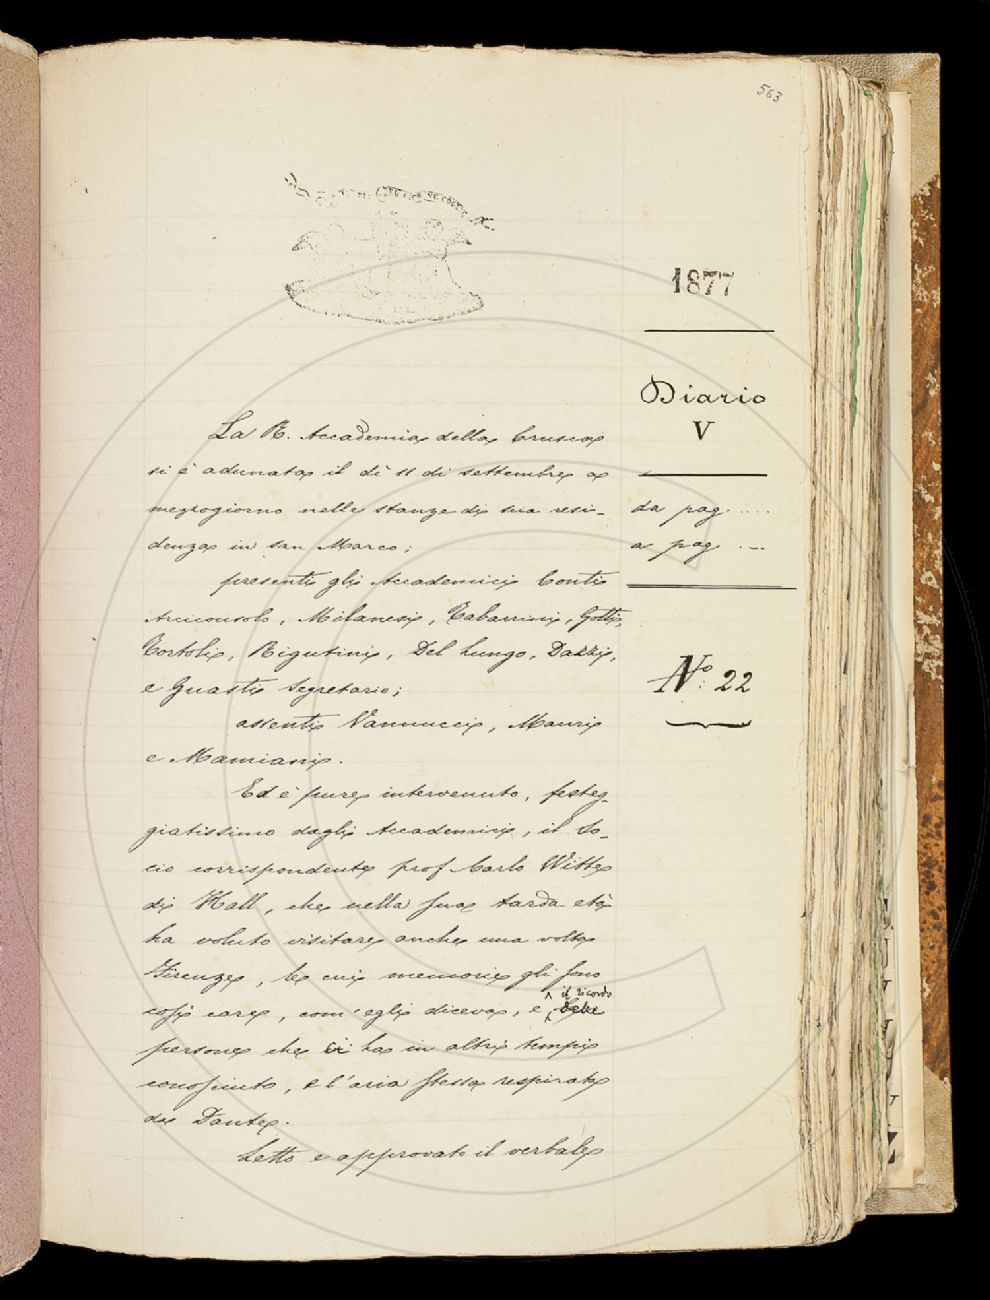 563
1877
Diario
V
da pag. .....
a pag. ...
N.º 22
La R. Accademia della Crusca
si è adunata il dì 11 di settembre a
mezzogiorno nelle stanze di sua resi-
denza in San Marco;
presenti gli Accademici Conti
Arciconsolo, Milanesi, Tabarrini, Gotti,
Tortoli, Rigutini, Del Lungo, Dazzi,
e Guasti Segretario;
assenti Vannucci, Mauri
e Mamiani.
Ed è pure intervenuto, festeg-
giatissimo dagli Accademici, il So-
cio corrispondente prof. Carlo Witte
di Hall, che nella sua tarda età
ha voluto visitare anche una volta
Firenze, le cui memorie gli sono
così care, com'egli diceva, e il ricordo delle
persone che ci ha in altri tempi
conosciuto, e l'aria stessa respirata
da Dante.
Letto e approvato il verbale